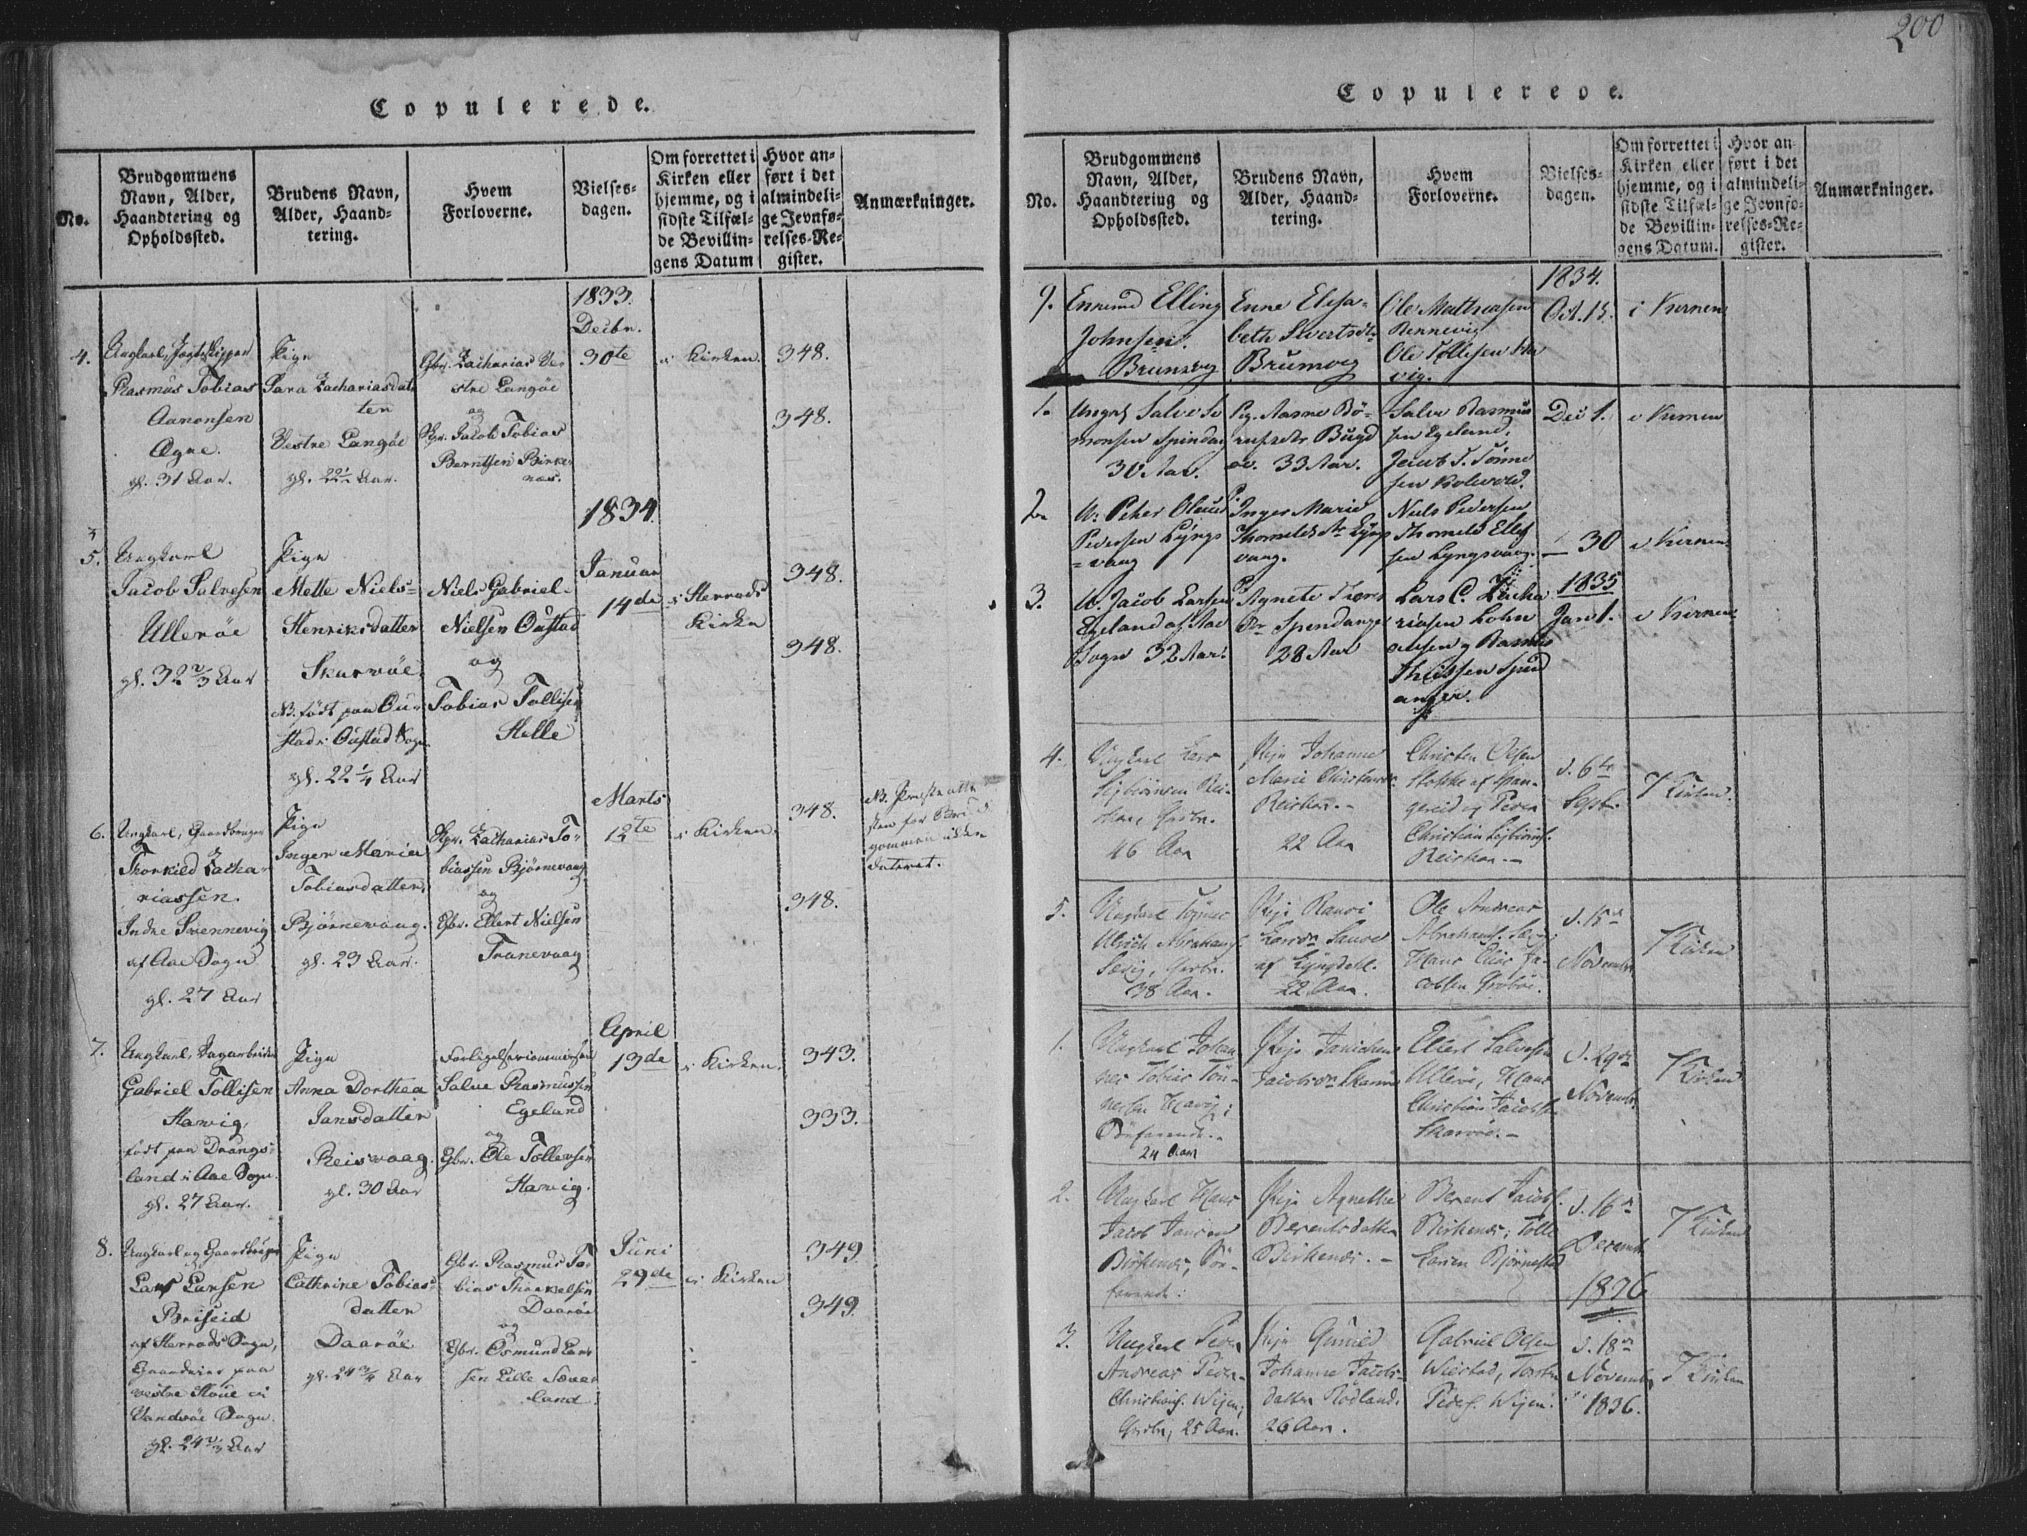 200
Copulerede.
No.
Brudgommens
Navn, Alder,
Haandtering og
Opholdssted.
Brudens Navn,
Alder, Haand-
tering.
Hvem
Forloverne.
Vielses-
dagen.
Om forrettet i
Kirken eller
hjemme, og i
sidste Tilfæl-
de Bevillin-
gens Datum
Hvor an-
ført i det
almindeli-
ge Jevnfø-
relses-Re-
gister.
Anmærkninger.
4.
Ungkarl, Jagtskipper
Rasmus Tobias
Aanonsen
Ogne.
gl. 31 Aar.
Pige
Sara Zachariasdat-
ter
Vestre Langöe
gl. 22½ Aar.
Gbr. Zacharias Ve-
stre Langöe
og
Jacob Tobias
Berntsen Birke-
næs.
1833.
Decbr.
30te
i Kirken.
348.
348.
5.
Ungkarl
Jacob Salvesen
Ulleröe
gl. 32 2/3 Aar
Pige
Mette Niels-
Henriksdatter
Skarvöe
NB. födt paa Ou-
stad i Oustad Sogn
gl. 22 1/4 Aar
Niels Gabriel
Nielsen Oustad
og
Tobias Tollisen
Helle
1834.
Januar
14de
i Herrads
Kirke
348.
348.
6.
Ungkarl, Gaardbruger
Thorkild Zacha-
riassen
Indre Svennevig
af Aae Sogn
gl. 27 Aar
Pige
Inger Maria
Tobiasdatter,
Bjørnevaag.
gl. 23 Aar.
Gbr. Zacharias To-
biassen Bjørnevaag
og
Gbr. Ellert Nielsen
Tranevaag
Marts
12te
i Kirken.
348.
348.
NB. Præsteatte-
sten for Brud-
gommen ikke
dateret.
7.
Ungkarl, Dagarbeider
Gabriel Tollisen
Havig,
født paa Drangs-
land i Aae Sogn
gl. 27 Aar.
Pige
Anna Dorthea
Jansdatter
Reisvaag.
gl. 30 Aar
Forligelsescommissair
Salve Rasmussen
Egeland
og
Gbr. Ole Tollevsen
Havig.
April
13de
i Kirken.
343.
333.
8.
Ungkarl og Gaardbruger
Lars Larsen
Briseid
af Herrads Sogn,
Gaardeier paa
vestre Skoue i
Vandsöe Sogn.
gl. 24 2/3 Aar
Pige
Cathrine Tobias-
datter
Daaröe
gl. 24 3/4 Aar
Gbr. Rasmus To-
bias Thorkelsen
Daaröe
og
Gbr. Osmund Lar-
sen Lille Sæve-
land
Juni
29de
i Kirken
349.
349.
Copulerede.
No.
Brudgommens
Navn, Alder,
Haandtering og
Opholdssted.
Brudens Navn,
Alder, Haand-
tering.
Hvem
Forloverne.
Vielses-
dagen.
Om forrettet i
Kirken eller
hjemme, og i
sidste Tilfæl-
de Bevillin-
gens Datum.
Hvor an-
ført i det
almindeli-
ge Jevnfø-
relses-Re-
gister.
Anmærkninger.
9.
Enkemd Elling
Johnsen
Brunsvig
Enne Elisa-
beth Sivertsdtr
Brunsvig
Ole Mathiasen
Rennevig
Ole Tollisen Ha
vig.
1834.
Oct. 15.
i Kirken
1.
Ungk. Salve Si
monsen Spindag
30 Aar.
Pig. Aasne Bö-
33 Aar.
Salve Rasmus
sen Egeland.
Jacob T. Tönne
sen
Dec 1.
i Kirken
2.
U. Peter Oluus
Pedersen Lyngs
=vaag
P. Inger Marie
Thomeldsdtr Lyngs
vaag.
Niels Pedersen
Thomeld Ellef
sen Lyngsvaag.
— 30
i Kirken
3.
U. Jacob Larsen
Egeland af Aae
Sogn 32 Aar.
P. Agnete
Spendanger
28 Aar
Lars C. Zacha
riasen
olesen og Rasmus
Spind
anger.
1835
Jan 1.
i Kirken
4.
Ungkarl Lars
46 Aar
Pige Johanne
Marie Christens
22 Aar
Christen Olsen
Peder
Christian
d. 6te
Sept.
I Kirken.
5.
Ungkarl Tönnes
Ulrich Abrahams.
38 Aar.
Pige
af Lyngdahl.
22 Aar.
Ole Andreas
Abrahams.
Hans Elias Ja-
cobsen
d. 15de
November
I Kirken
1.
Ungkarl Johan-
nes Tobias Tön-
nesen Havig;
Söefarende.
24 Aar
Pige
Jacobsdr Skarvöe
Ellert Salvesen
Ulleröe, Hans
Christian Jacobsen
Skarvöe.
d. 29de
November
I Kirken
2.
Ungkarl Hans
Jacob Jansen
Birkenæs, Söe-
farende.
Pige Agnethe
Berentsdatter
Birkenæs.
Berent Jacobs.
Birkenæs, Tolle
Larsen Bjørnestad
d. 16de
Decemb.
1836
I Kirken
3.
Ungkarl Peder
Andreas Peder
Christians. Wigen,
Gbr., 25 Aar.
Pige Gunild
Johanne Jacobs-
datter Rödland,
26 Aar.
Gabriel Olsen
Wiestad, Torsten
Peders. Wigen.
d. 18de
Novemb.
1836.
I Kirken